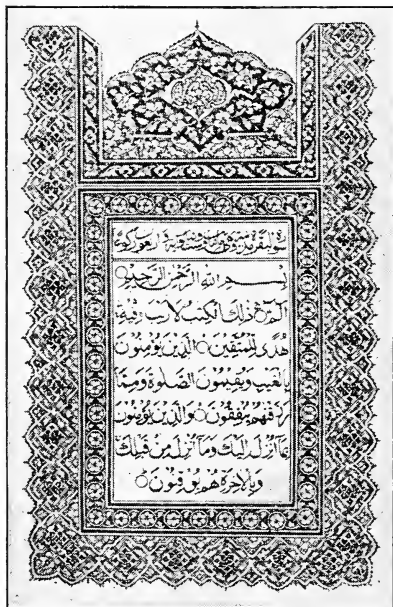 سورة البقرة مدنية
بِسْمِ اللهِ الرَّحْمٰنِ الرَّحِيْمِ
الٓمّٓ ۚ ذٰلِكَ الْكِتٰبُ لَا رَيْبَ فِيْهِ
هُدًى لِّلْمُتَّقِيْنَ ○ الَّذِيْنَ يُؤْمِنُوْنَ
بِالْغَيْبِ وَيُقِيْمُوْنَ الصَّلٰوةَ وَمِمَّا
رَزَقْنٰهُمْ يُنْفِقُوْنَ ○ وَالَّذِيْنَ يُؤْمِنُوْنَ
بِمَآ اُنْزِلَ اِلَيْكَ وَمَآ اُنْزِلَ مِنْ قَبْلِكَ
وَبِالْاٰخِرَةِ هُمْ يُوْقِنُوْنَ ○